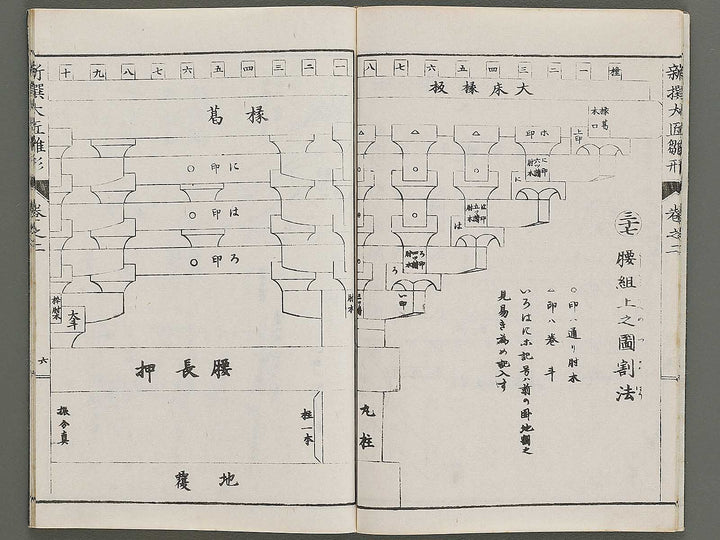 新撰大匠雛形
巻之二
三十七 腰組上之圖割法
○印ハ通リ肘木
△印ハ巻斗
いろはにホ記号ハ前の
見易き為め記入す
柱 一 二 三 四 五 六 七 八
大床椽板
椽葛
木口
上印
ホ印
に印
六ツ踊
肘木
に
は印
五ツ踊
肘木
は
ろ印
肘木
ろ
い印
肘木
丸柱
一 二 三 四 五 六 七 八 九 十
椽葛
に印○
は印○
ろ印○
大斗
枠肘木
腰長押
柱一本
振分真
地覆
新撰大匠雛形
巻之二
六